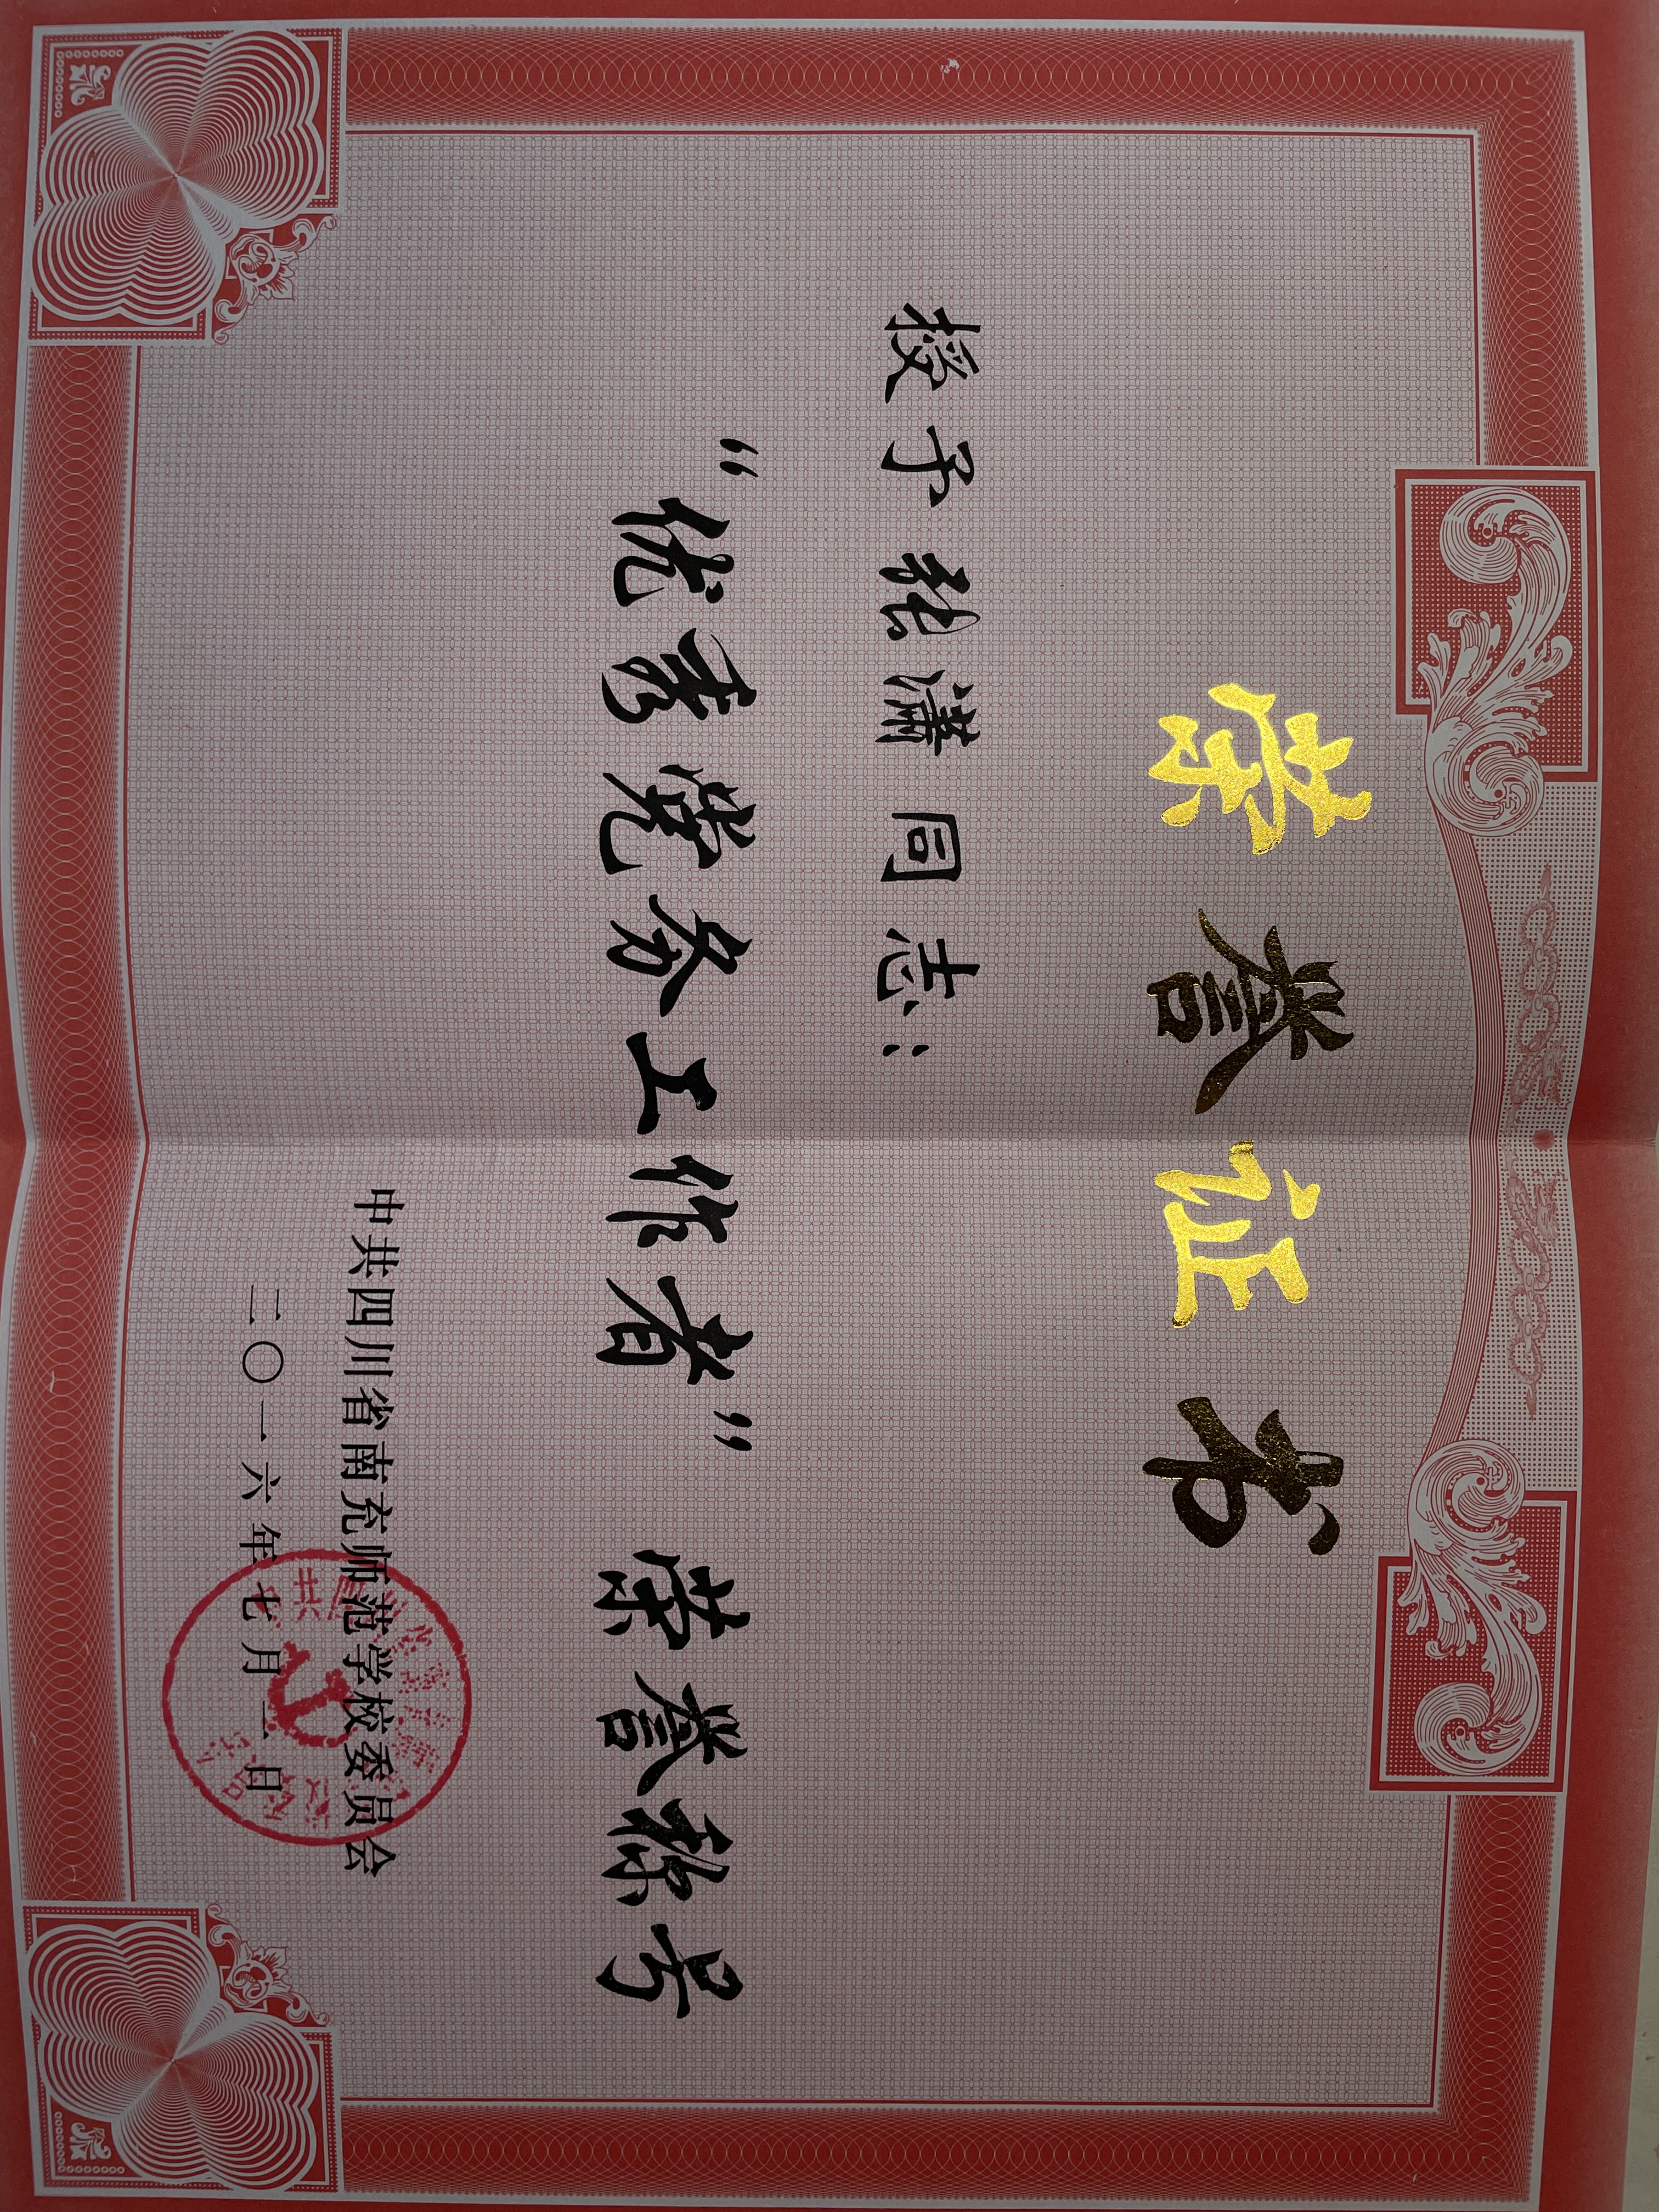 荣誉证书
授予张潇同志：
“优秀党务工作者”荣誉称号
中共四川省南充师范学校委员会
二〇一六年七月一日